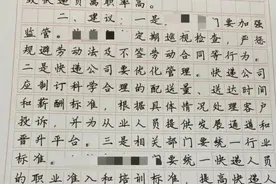 递员离职率高。
二、建议:一是 门要加强
监管。 定期巡视检查,严惩
规避劳动法及不签劳动合同等行为。
二是快递公司要优化管理。快递公司
应制订科学合理的配送量、送达时间
和薪酬标准,根据具体情况处理客户
投诉,并为从业人员提供发展通道和
晋升平台。三是相关部门要统一行业
标准。 要统一快递人员
的职业准入和培训标准,提高快递人